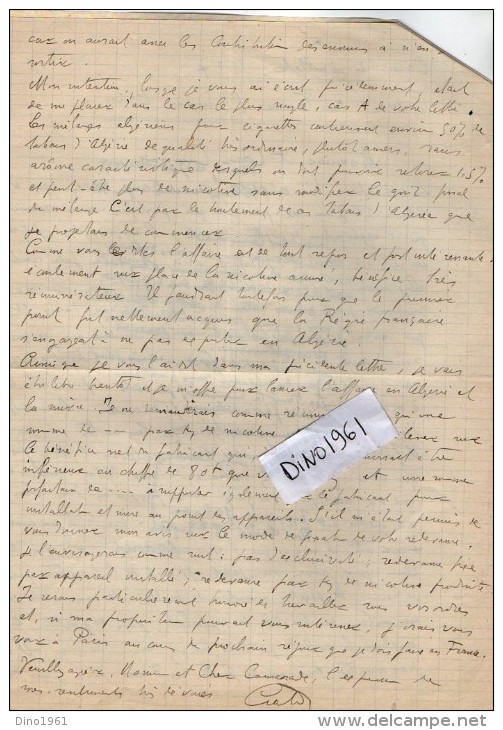 car on aurait avec les contribution des ennuis à n'en
sortir.
Mon intention, lorsque je vous ai écrit précédemment, était
de me placer dans le cas le plus simple, cas A de votre lettre.
Les mélanges algériens pour cigarettes contiennent environ 50% de
tabacs d'Algérie de qualité très ordinaire, plutôt amers, sans
arôme caractéristique desquels on doit pouvoir retirer 1.5%
et peut-être plus de nicotine sans modifier le goût final
du mélange C'est par le traitement de ces tabacs d'Algérie que
je proposais de commencer
Comme vous le dites l'affaire est de tout repos et
écoulement sur place de la nicotine assuré, bénéfice très
rémunérateur Il faudrait toutefois pour que le premier
point fut nettement acquis que la Régie française
s'engageât à ne pas exporter en Algérie.
Ainsi que je vous l'ai dit dans ma précédente lettre, je vais
être libre bientôt et je m'offre pour lancer l'affaire en Algérie et
la suivre. Je ne demanderais comme rémunération qu'une
somme de --- par kg de nicotine
le bénéfice net du fabricant qui
inférieur au chiffre de 80 f que et une somme
forfaitaire de --- à supporter également le fabricant pour
installation et mise au point des appareils. S'il m'était permis de
vous donner mon avis sur le mode de de votre redevance.
je l'envisagerais comme suit: pas d'exclusivité; redevance fixe
par appareil installé; redevance par kg de nicotine produite
Je serais particulièrement heureux de travailler sous vos ordres
et, si ma proposition pouvait vous intéresser, j'irais vous
voir à Paris au cours du prochain séjour que je dois faire en France.
Veuillez agréer, Monsieur et Cher Camarade, l'expression de
mes sentiments très dévoués
DINO1961
Dino1961
www.delcampe.net